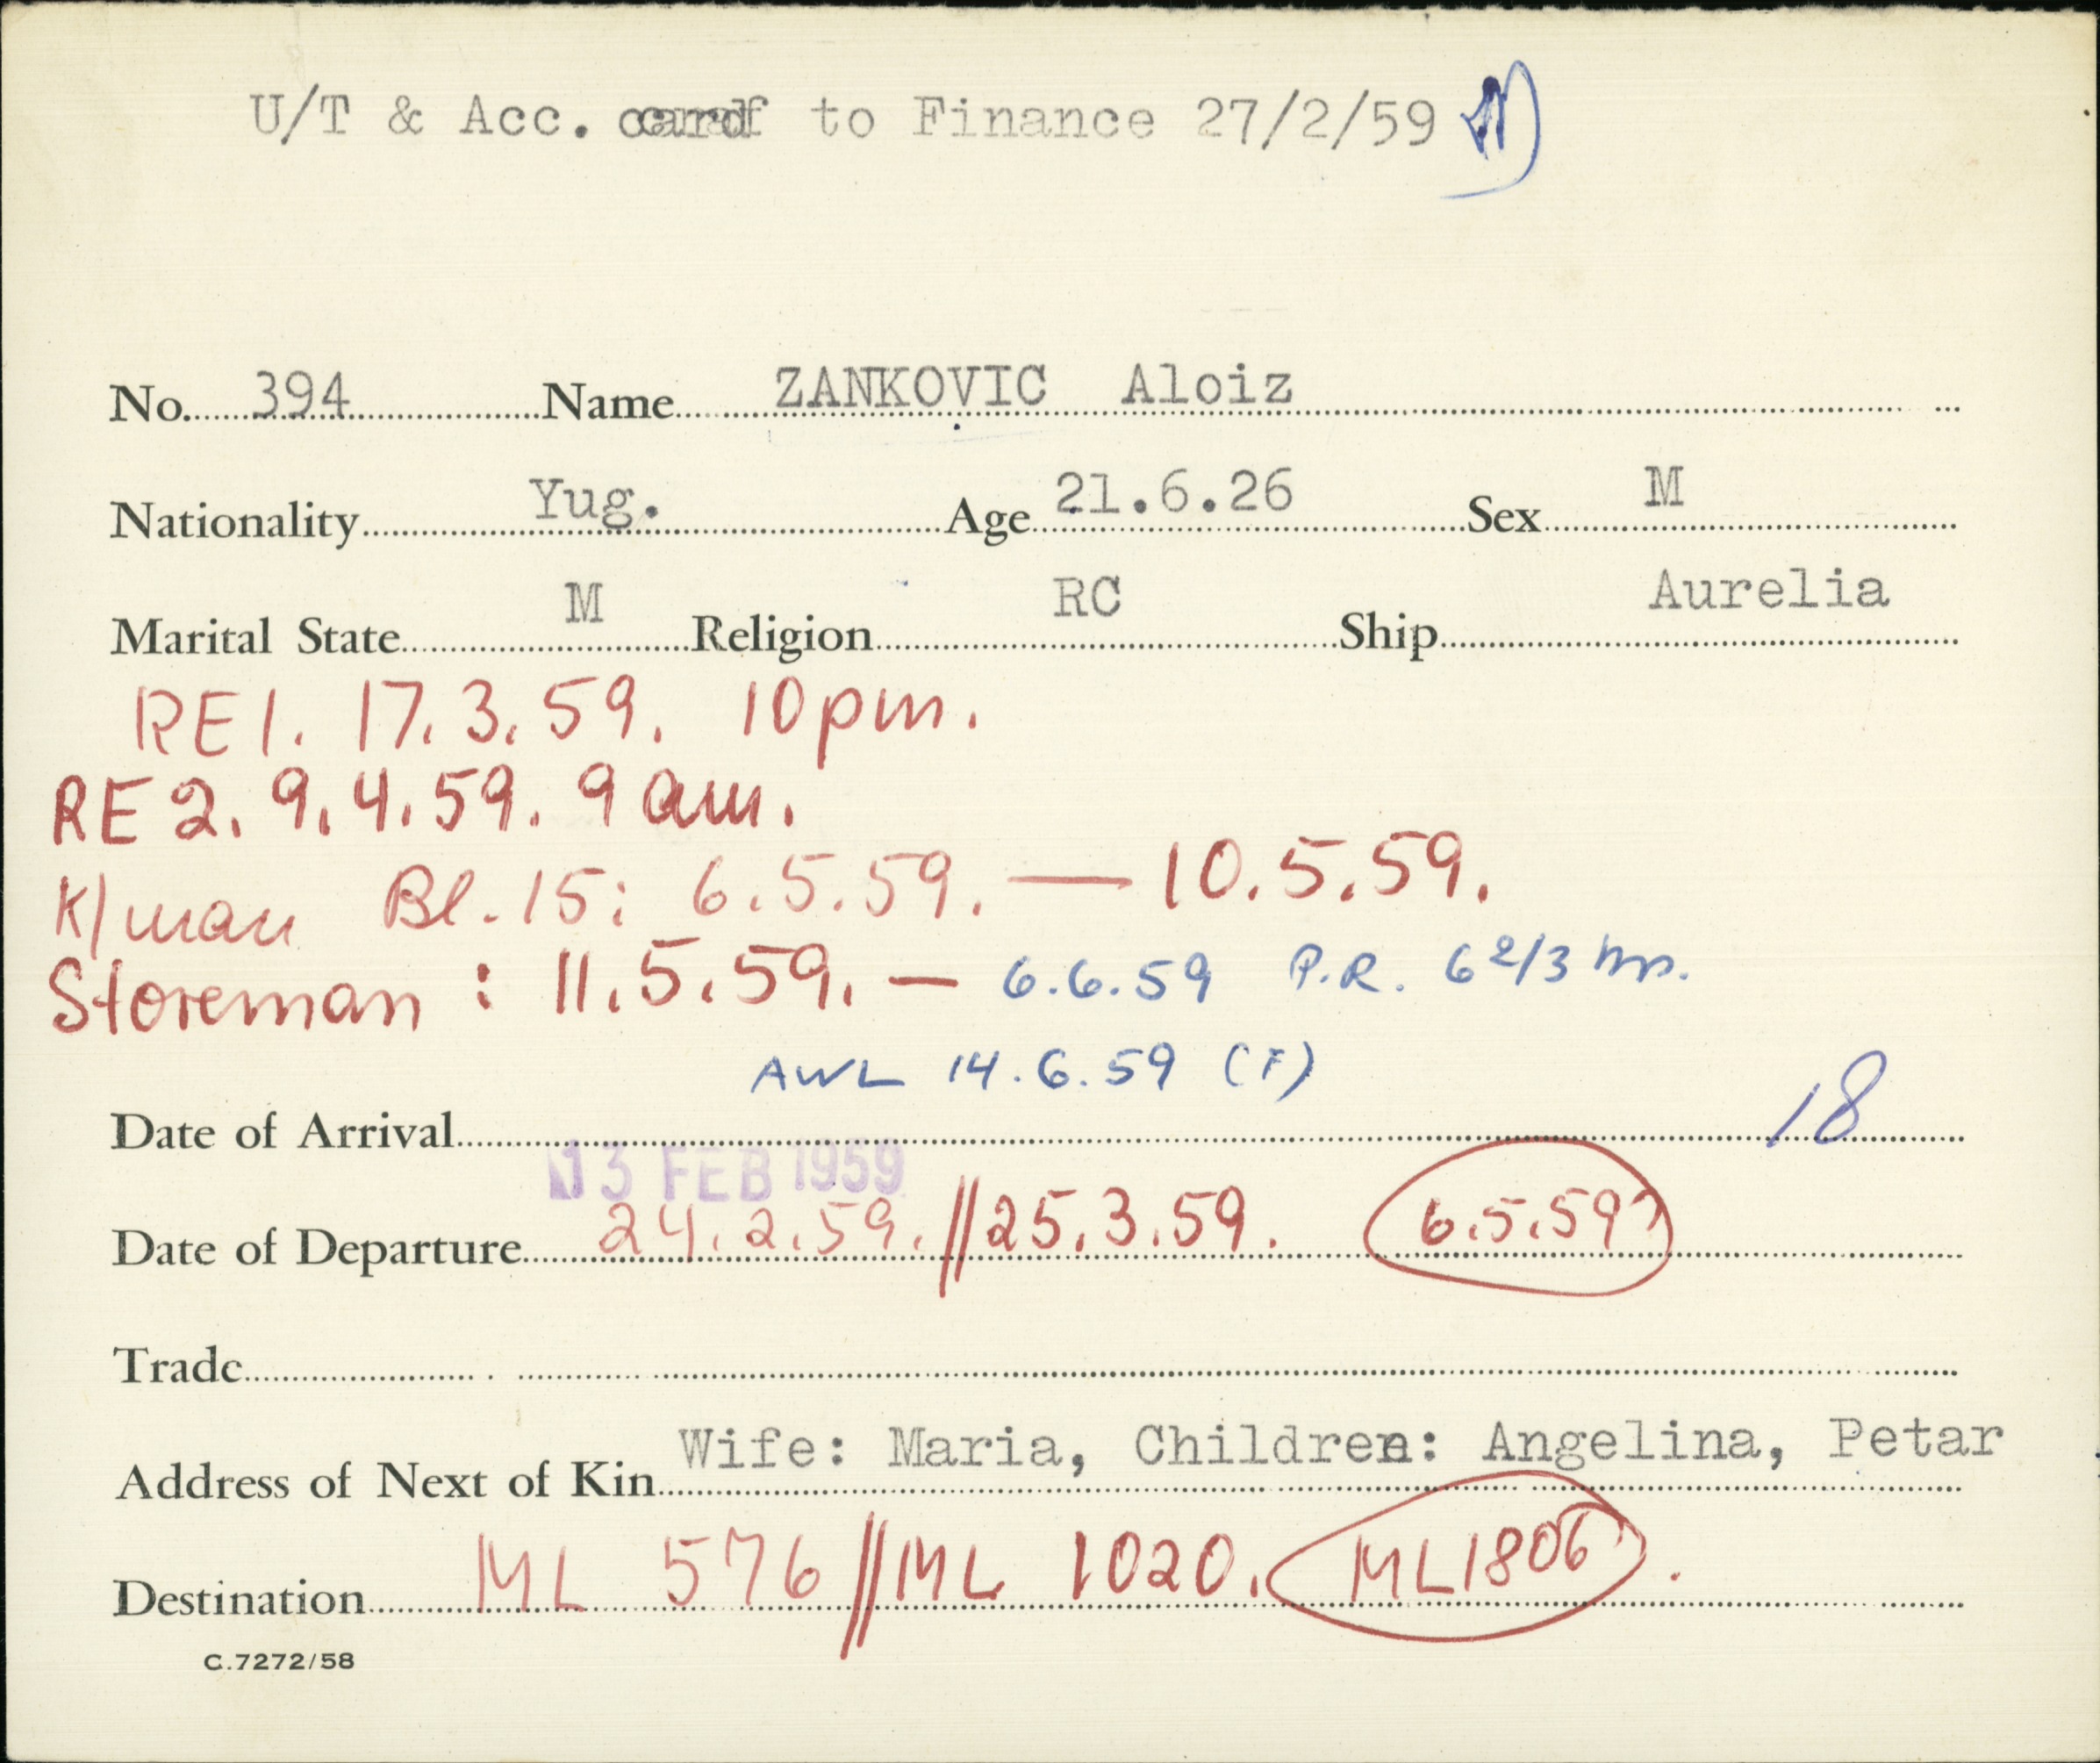 U/T & Acc. card to Finance 27/2/59
No. 394 Name ZANKOVIC Aloiz
Nationality Yug. Age 21.6.26 Sex M
Marital State M Religion RC Ship Aurelia
RE1. 17.3.59. 10pm.
RE2. 9.4.59. 9am.
K/man Bl.15: 6.5.59. — 10.5.59.
Storeman : 11.5.59. — 6.6.59 P.R. 6 2/3 hrs.
AWL 14.6.59 (F)
Date of Arrival 18
13 FEB 1959
Date of Departure 24.2.59. // 25.3.59. 6.5.59
Trade
Address of Next of Kin Wife: Maria, Children: Angelina, Petar
Destination ML 576 // ML 1020. ML1806.
C.7272/58